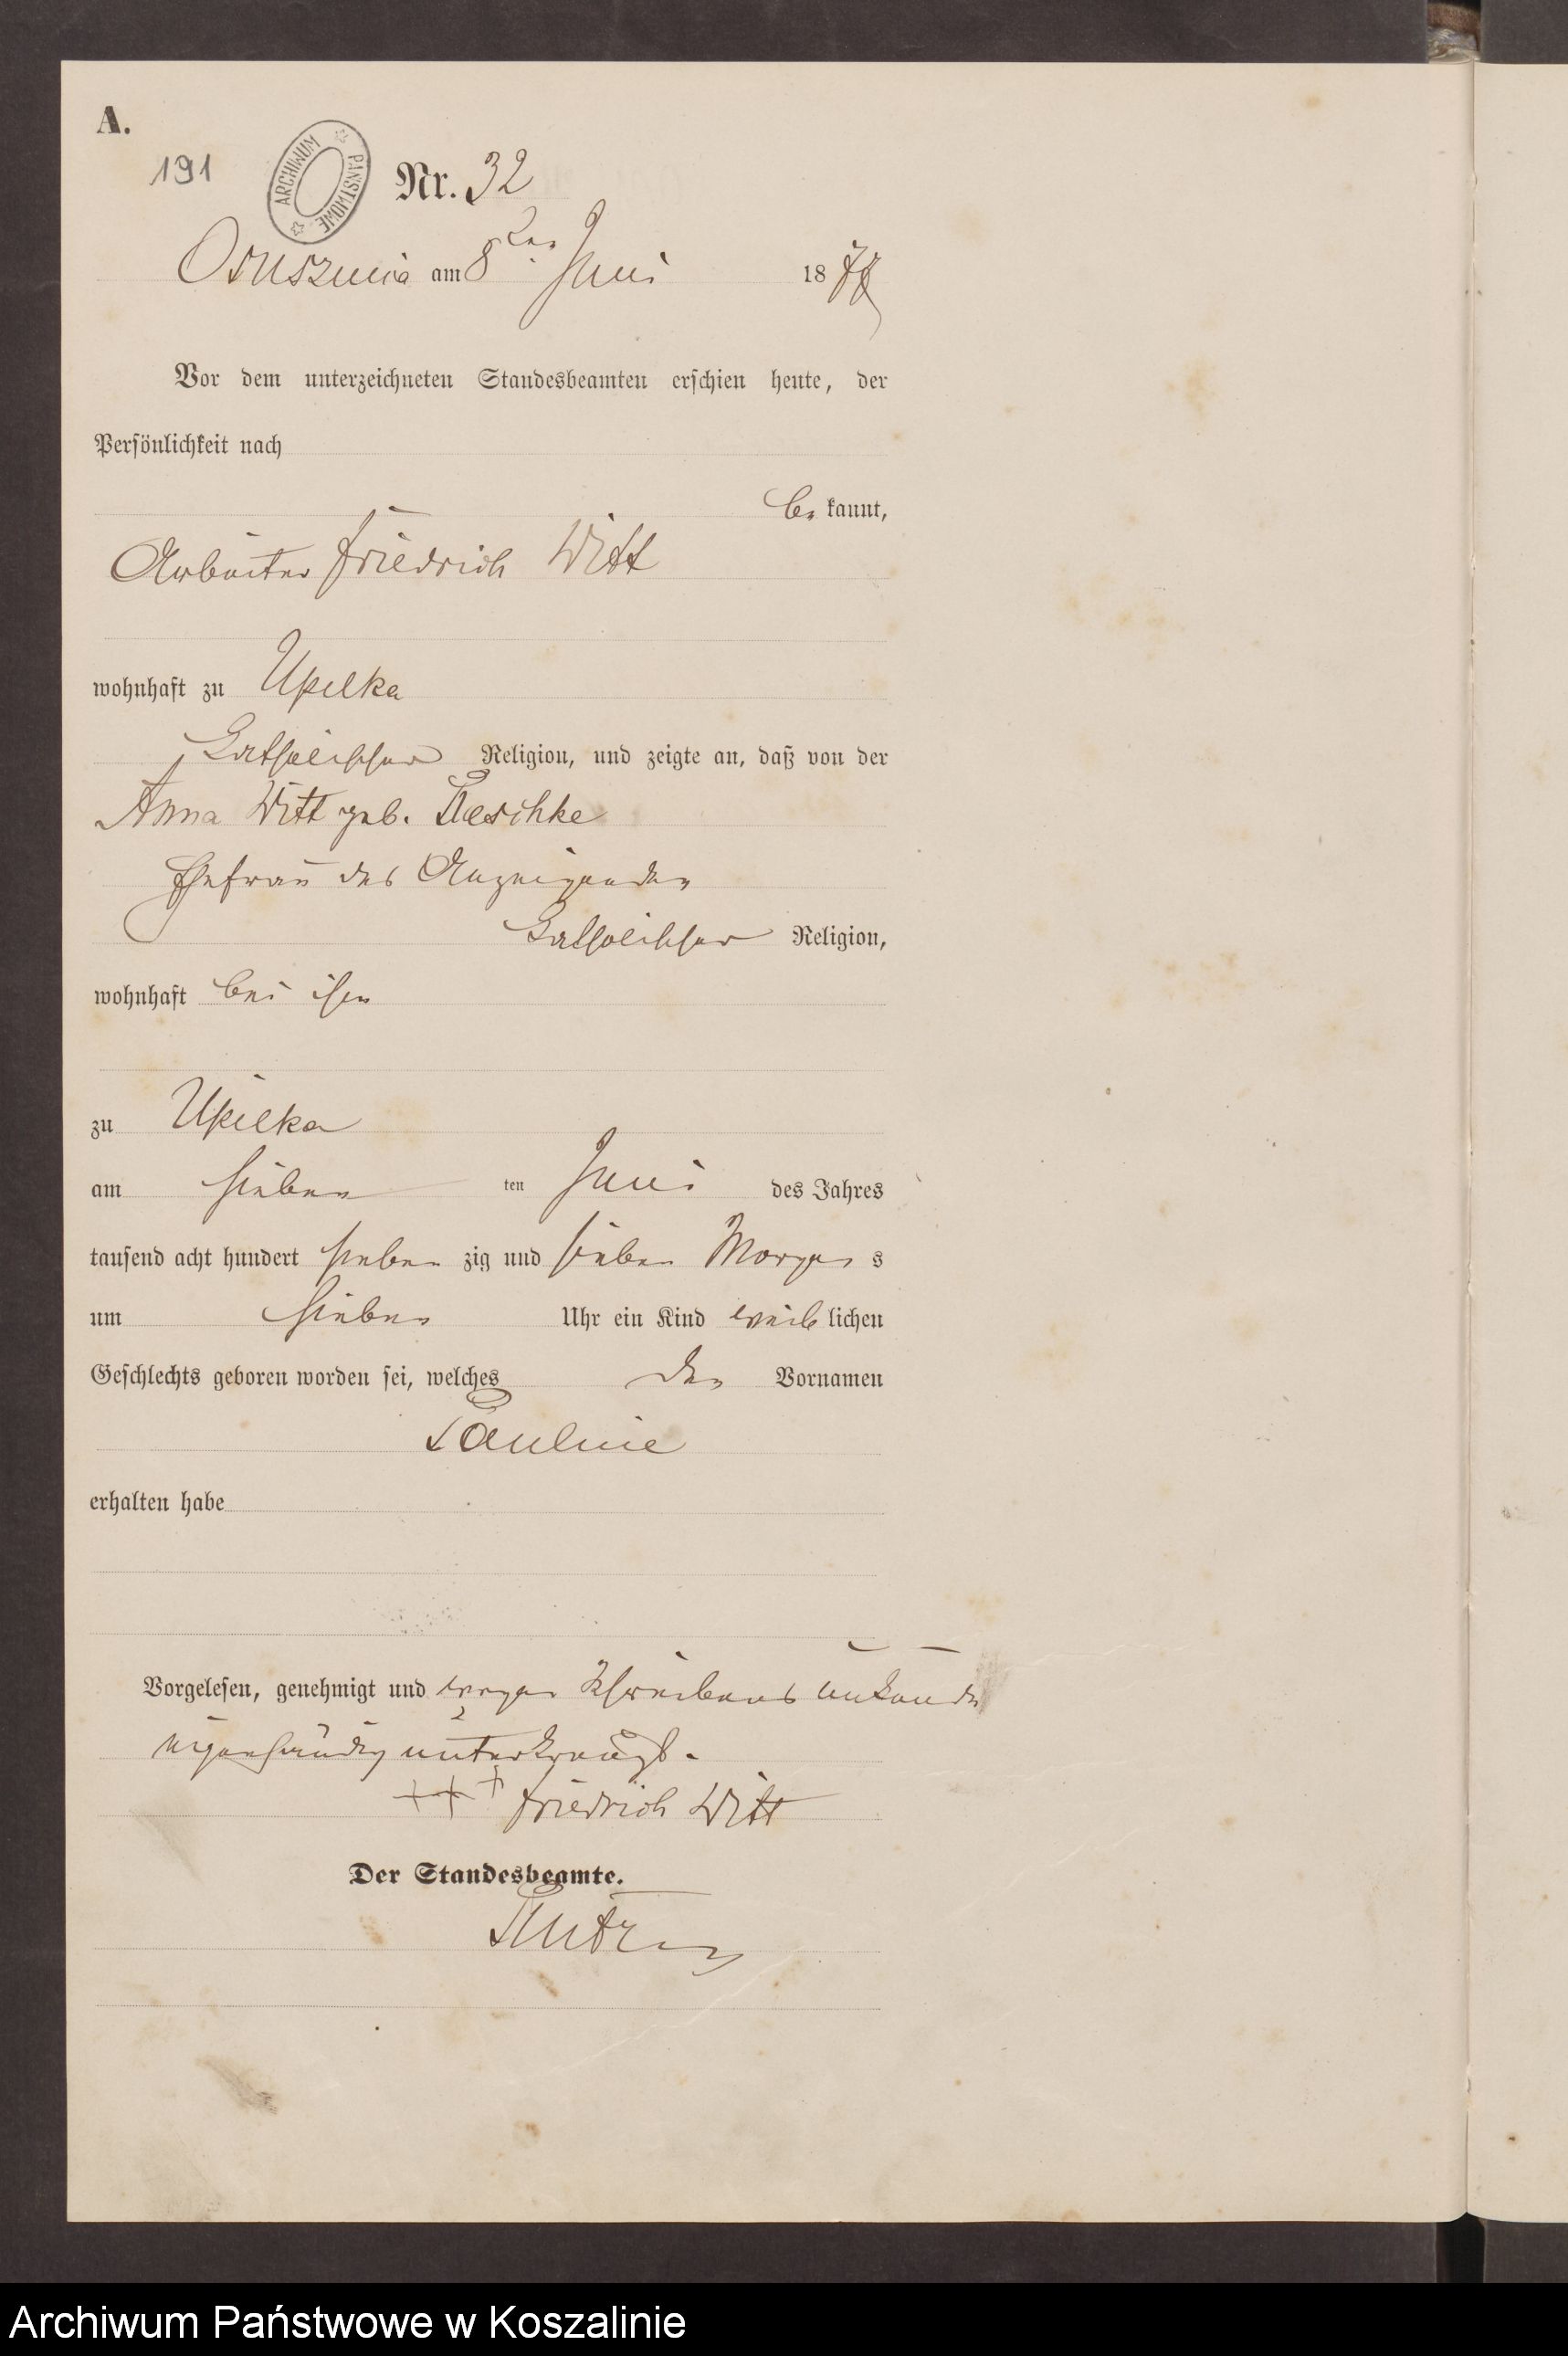 A.
191
ARCHIWUM PAŃSTWOWE
Nr. 32
Osusznica am 8ten Juni 1877
Vor dem unterzeichneten Standesbeamten erschien heute, der
Persönlichkeit nach
be kannt,
Arbeiter Friedrich Witt
wohnhaft zu Upilka
katholischer Religion, und zeigte an, daß von der
Anna Witt geb. Paeschke
Ehefrau des Anzeigenden
katholischer Religion,
wohnhaft bei ihm
zu Upilka
am sieben ten Juni des Jahres
tausend acht hundert sieben zig und sieben Morgen s
um sieben Uhr ein Kind weib lichen
Geschlechts geboren worden sei, welches den Vornamen
Pauline
erhalten habe
Vorgelesen, genehmigt und wegen Schreibens unkunde
eigenhändig unterkreuzt.
+++ Friedrich Witt
Der Standesbeamte.
Archiwum Państwowe w Koszalinie